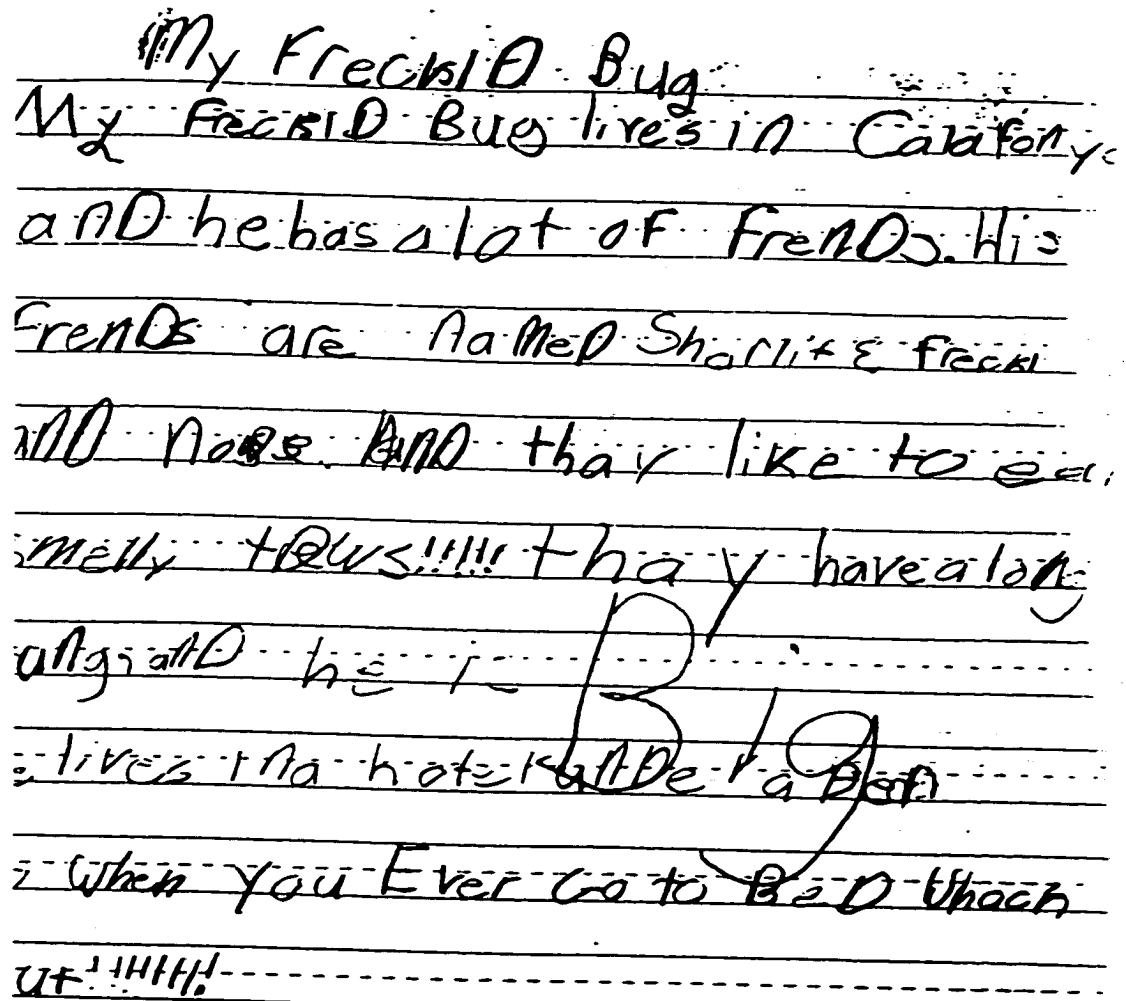 My FrecklD Bug
My FrecklD Bug lives in Calafony
anD he has a lot of FrenDs. His
FrenDs are nameD Sharlit & freckl
anD nose. AnD thay like to ea
smelly tows!!!!! thay have a long
ang, anD he is Big
lives ina hotel unDer a Ben
when you Ever Go to BeD Whach
ut!!!!!!!!